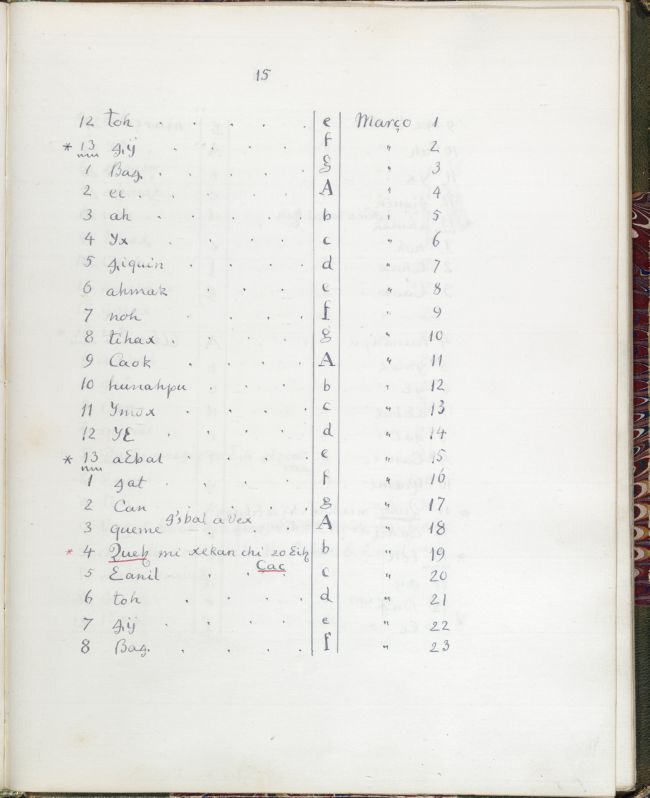 15
12 toh . . . . . e Março 1
* 13 gij . . . . . f " 2
1 Bag. . . . . . g " 3
2 ee . . . . . A " 4
3 ah . . . . . b " 5
4 Yx . . . . c " 6
5 giquin . . . . d " 7
6 ahmak . . . . e " 8
7 noh . . . . f " 9
8 tihax . . . . g " 10
9 Caok . . . . A " 11
10 hunahpu . . . b " 12
11 Ymox . . . . c " 13
12 YE . . . . d " 14
* 13 aEbal . . . e " 15
1 gat . . . . f " 16
2 Can . . . . g " 17
3 queme g'sbal avex A " 18
* 4 Queh mi xekan chi 20 Eih b " 19
5 Eanil . . Çac c " 20
6 toh . . . . d " 21
7 gij . . . . e " 22
8 Bag. . . . . f " 23